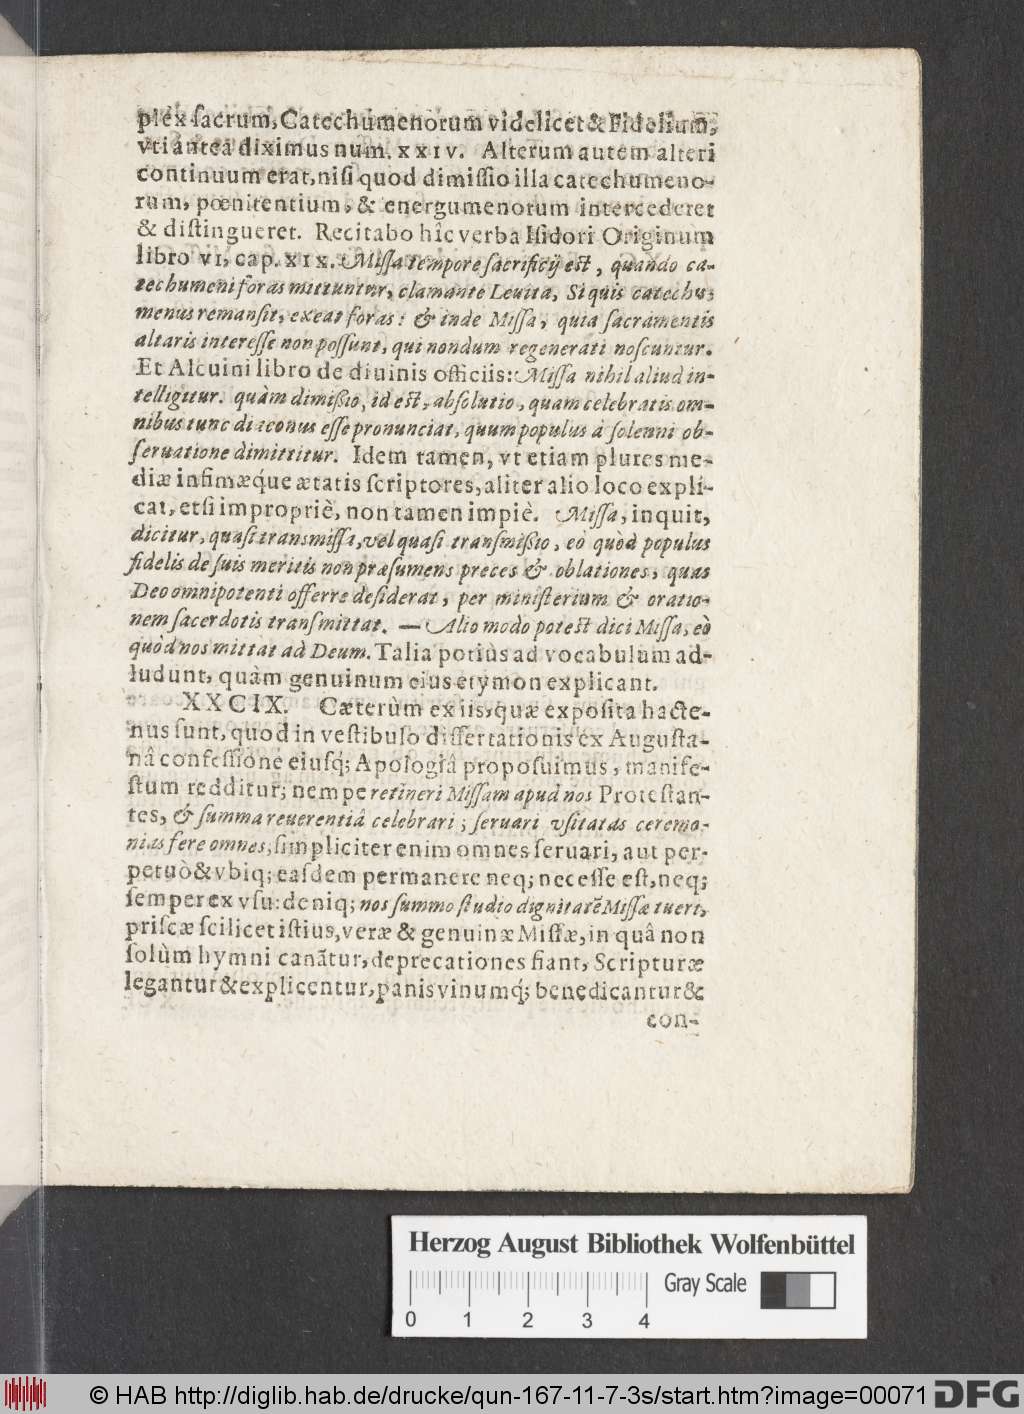 plex sacrum, Catechumenorum videlicet & Fidelium,
vti anteà diximus num. xxiv. Alterum autem alteri
continuum erat, nisi quod dimissio illa catechumeno-
rum, pœnitentium, & energumenorum intercederet
& distingueret. Recitabo hîc verba Isidori Originum
libro vi, cap. xix. Missa tempore sacrificij est, quando ca-
techumeni foras mittuntur, clamante Leuita, Si quis catechu-
menus remansit, exeat foras: & inde Missa, quia sacramentis
altaris interesse non possunt, qui nondum regenerati noscuntur.
Et Alcuini libro de diuinis officiis: Missa nihil aliud in-
telligitur. quàm dimißio, id est, absolutio, quam celebratis om-
nibus tunc diaconus esse pronunciat, quum populus à solenni ob-
seruatione dimittitur. Idem tamen, vt etiam plures me-
diæ infimæq́ue ætatis scriptores, aliter alio loco expli-
cat, etsi impropriè, non tamen impiè. Missa, inquit,
dicitur, quasi transmissa, vel quasi transmißio, eò quòd populus
fidelis de suis meritis non præsumens preces & oblationes, quas
Deo omnipotenti offerre desiderat, per ministerium & oratio-
nem sacerdotis transmittat. — Alio modo potest dici Missa, eò
quòd nos mittat ad Deum. Talia potiùs ad vocabulum ad-
ludunt, quàm genuinum eius etymon explicant.
XXCIX. Cæterùm ex iis, quæ exposita hacte-
nus sunt, quod in vestibulo dissertationis ex Augusta-
nâ confessione eiusq́; Apologiâ proposuimus, manife-
stum redditur; nempe retineri Missam apud nos Protestan-
tes, & summa reuerentiâ celebrari; seruari vsitatas ceremo-
nias fere omnes, simpliciter enim omnes seruari, aut per-
petuò & vbiq; easdem permanere neq; necesse est, neq;
semper ex vsu: deniq; nos summo studio dignitatẽ Missæ tueri,
priscæ scilicet istius, veræ & genuinæ Missæ, in quâ non
solùm hymni canãtur, deprecationes fiant, Scripturæ
legantur & explicentur, panis vinumq́; benedicantur &
con-
Herzog August Bibliothek Wolfenbüttel
Gray Scale
0 1 2 3 4
© HAB http://diglib.hab.de/drucke/qun-167-11-7-3s/start.htm?image=00071 DFG